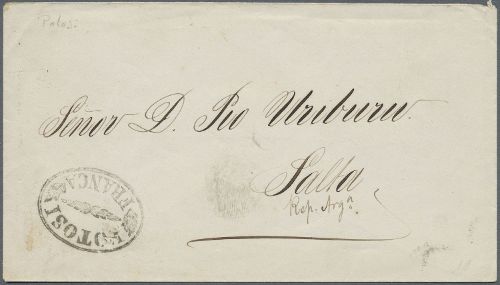 Potosi.
Señor D. Pio Uriburu.
Salta
Rep. Argª.
POTOSI
FRANCA